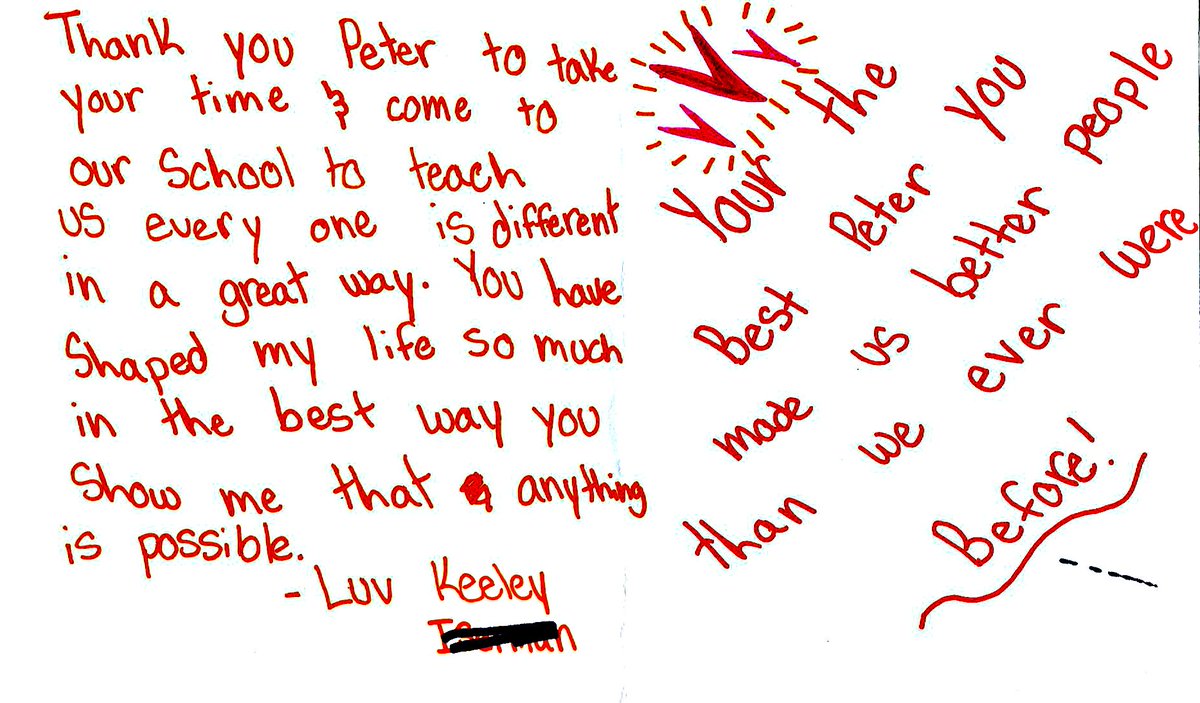 Thank you Peter to take
your time & come to
our School to teach
us every one is different
in a great way. You have
Shaped my life so much
in the best way you
Show me that anything
is possible.
- Luv Keeley
Your the
Best Peter You
made us better people
than we ever were
Before!